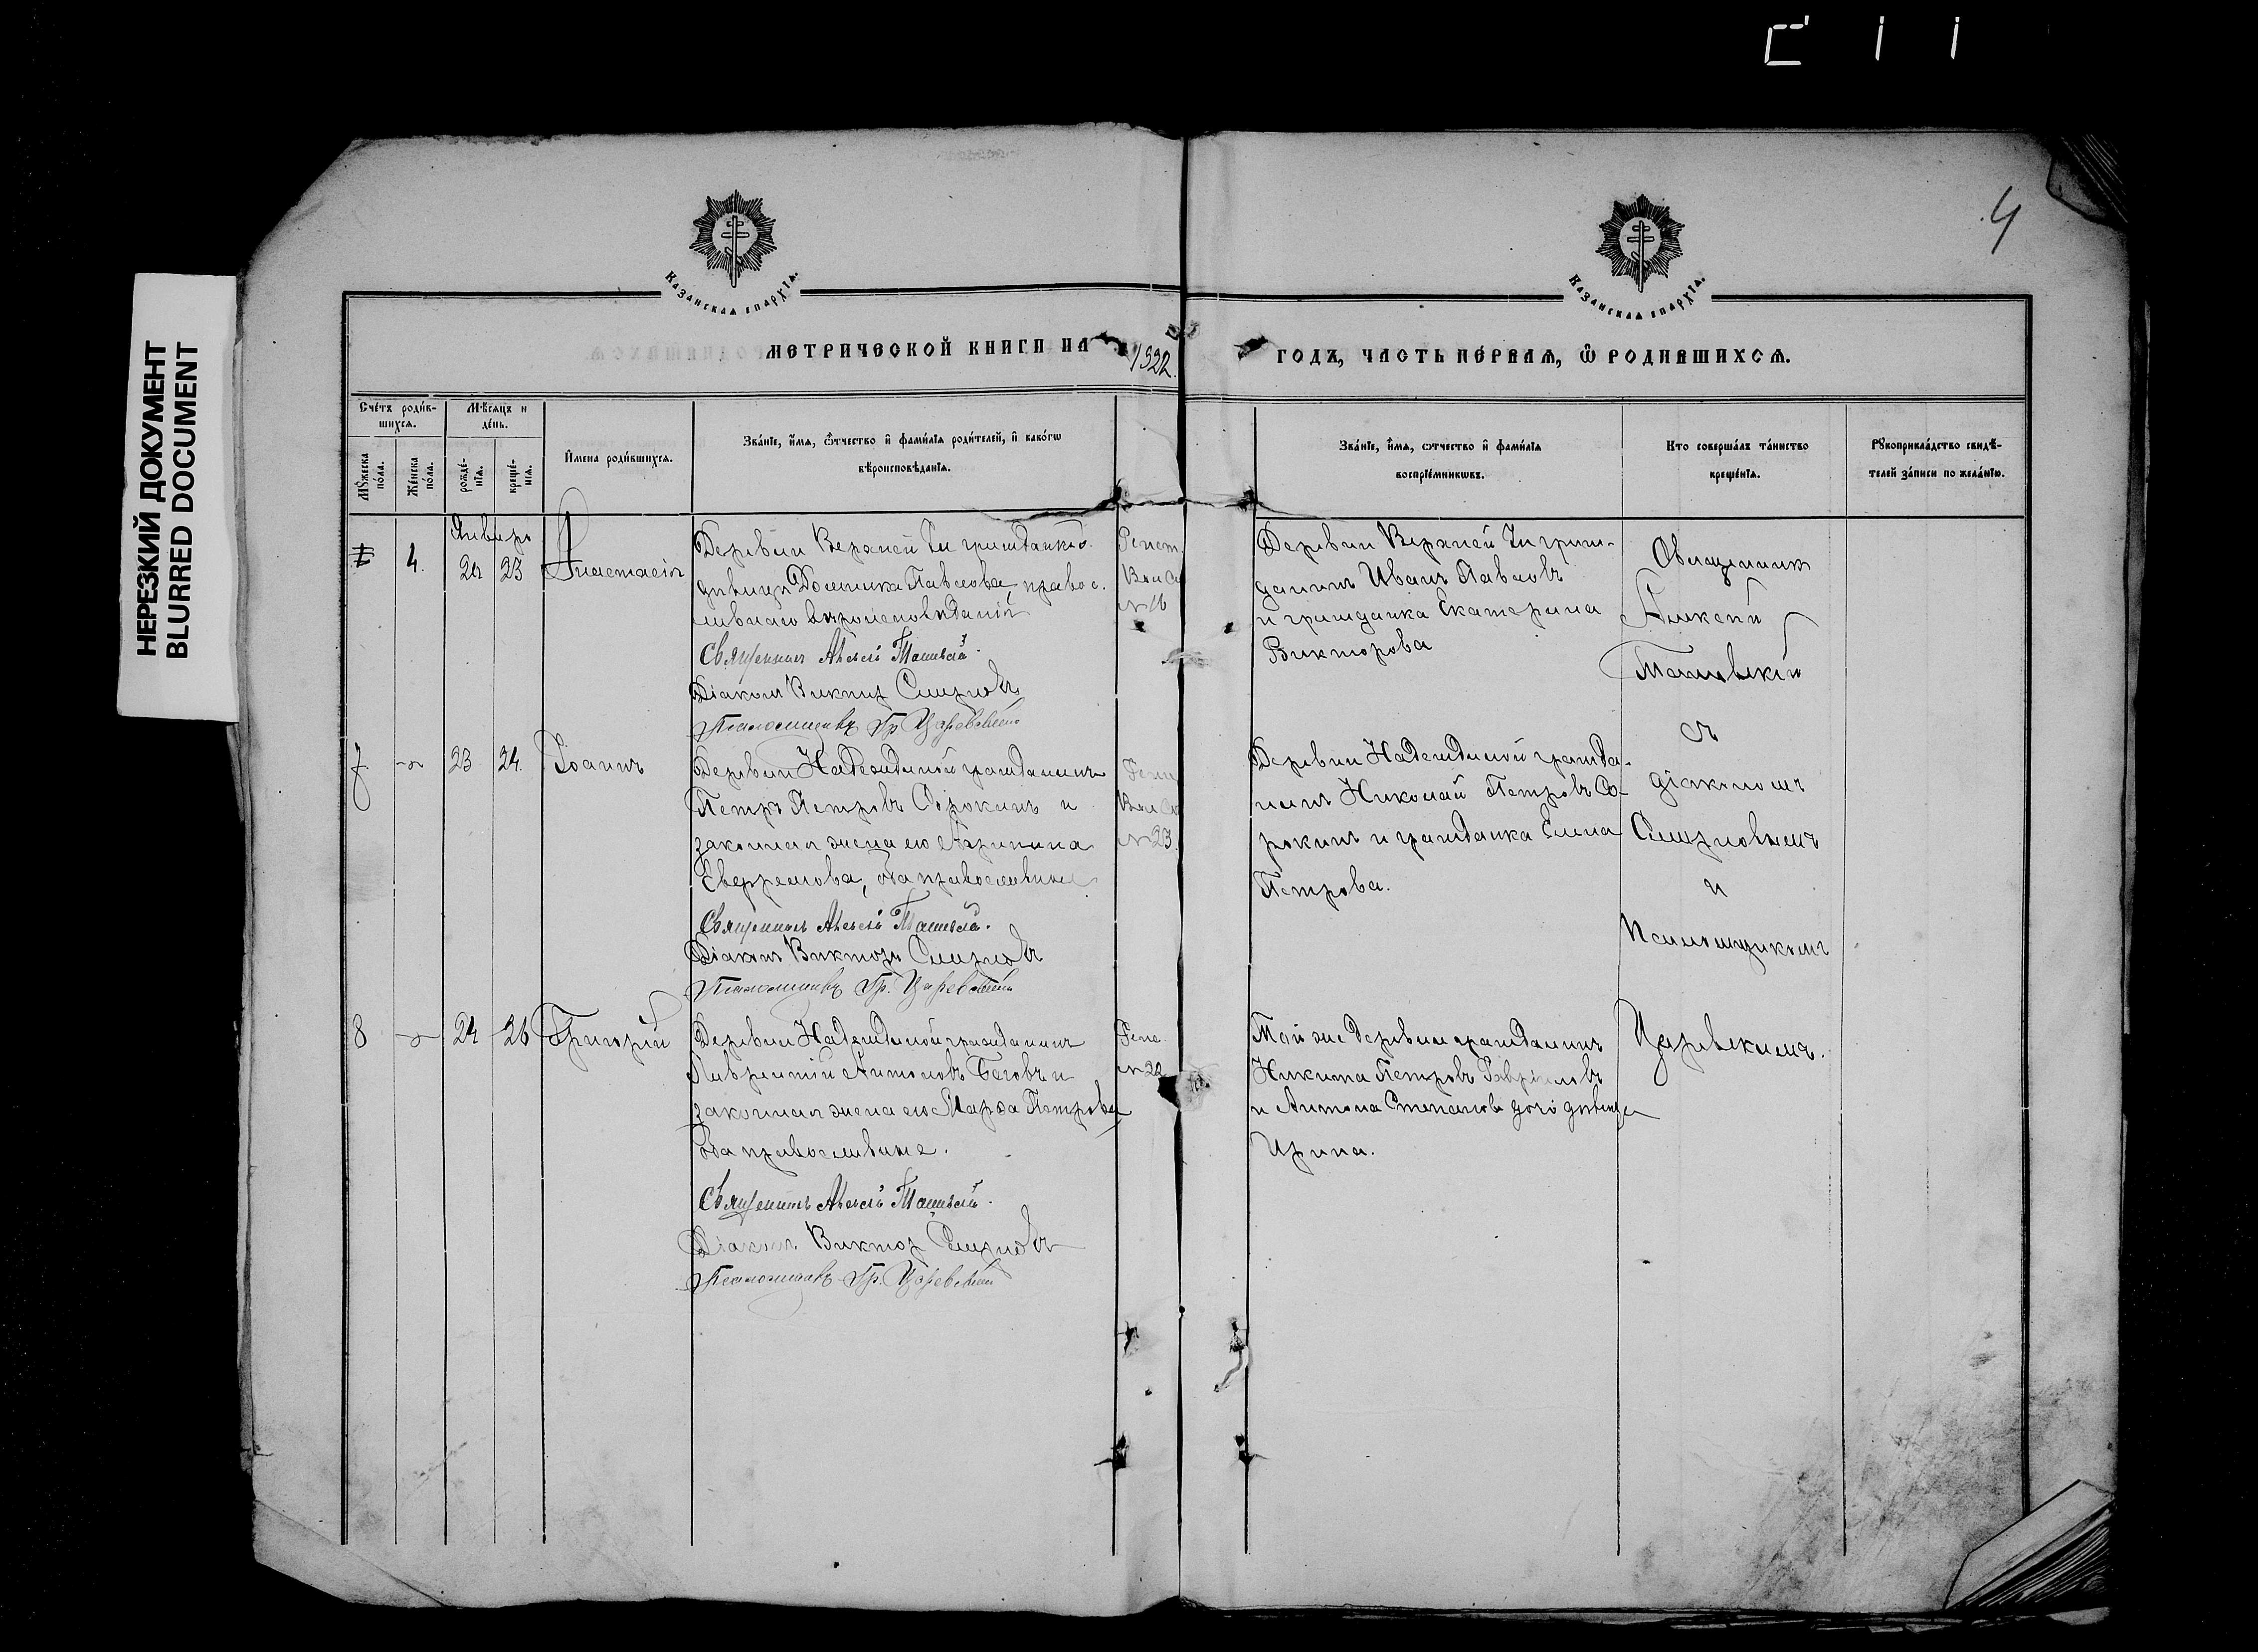 НЕРЕЗКИЙ ДОКУМЕНТ
BLURRED DOCUMENT
4
Казанская епархїѧ.
Казанская епархїѧ.
МЕТРИЧЕСКОЙ КНИГИ НА 1922
ГОДЪ, ЧАСТЬ ПЕРВАѦ, Ѿ РОДИВШИХСѦ.
Счетъ родив-
шихсѧ.
Мѣсѧцъ и
день.
Мꙋжеска
пола.
Женска
пола.
рожде-
нїѧ.
креще-
нїѧ.
Имена родившихсѧ.
Званїе, имѧ, ѿчество и фамилїѧ родителей, и какогѡ
вѣроисповѣданїѧ.
Званїе, имѧ, ѿчество и фамилїѧ
воспрїемникѡвъ.
Кто совершалъ таинство
крещенїѧ.
Рꙋкоприкладство свидѣ-
телей записи по желанїю.
Январь
4. 23 Анастасія
Деревни Верхней гражданка
дѣвица Павлова, правос.
лавнаго вѣроисповѣданія
Священникъ Алексѣй
Діаконъ Викторъ Смирновъ
Псаломщикъ Гр. Царевскій
№ 16
Деревни Верхней граж-
данинъ Иванъ Павловъ
и гражданка Екатерина
Викторова
Священникъ
Алексѣй
съ
діакономъ
Смирновымъ
и
Псаломщикомъ
Царевскимъ.
7 23 24. Іоаннъ
Деревни Надеждиной гражданинъ
Петръ Петровъ Сорокинъ и
законная жена его Агрипина
Евфремова, оба православные
Священникъ Алексѣй
Діаконъ Викторъ Смирновъ
Псаломщикъ Гр. Царевскій
№ 23.
Деревни Надеждиной гражда-
нинъ Николай Петровъ Со-
рокинъ и гражданка Елена
Петрова.
8 24 26 Григорій
Деревни Надеждиной гражданинъ
Лаврентій Антоновъ и
законная жена его Марѳа Петрова
оба православные.
Священникъ Алексѣй
Діаконъ Викторъ Смирновъ
Псаломщикъ Гр. Царевскій
Той же деревни гражданинъ
Никита Петровъ Гавриловъ
и Антона Степанова дочь дѣвица
Ирина.